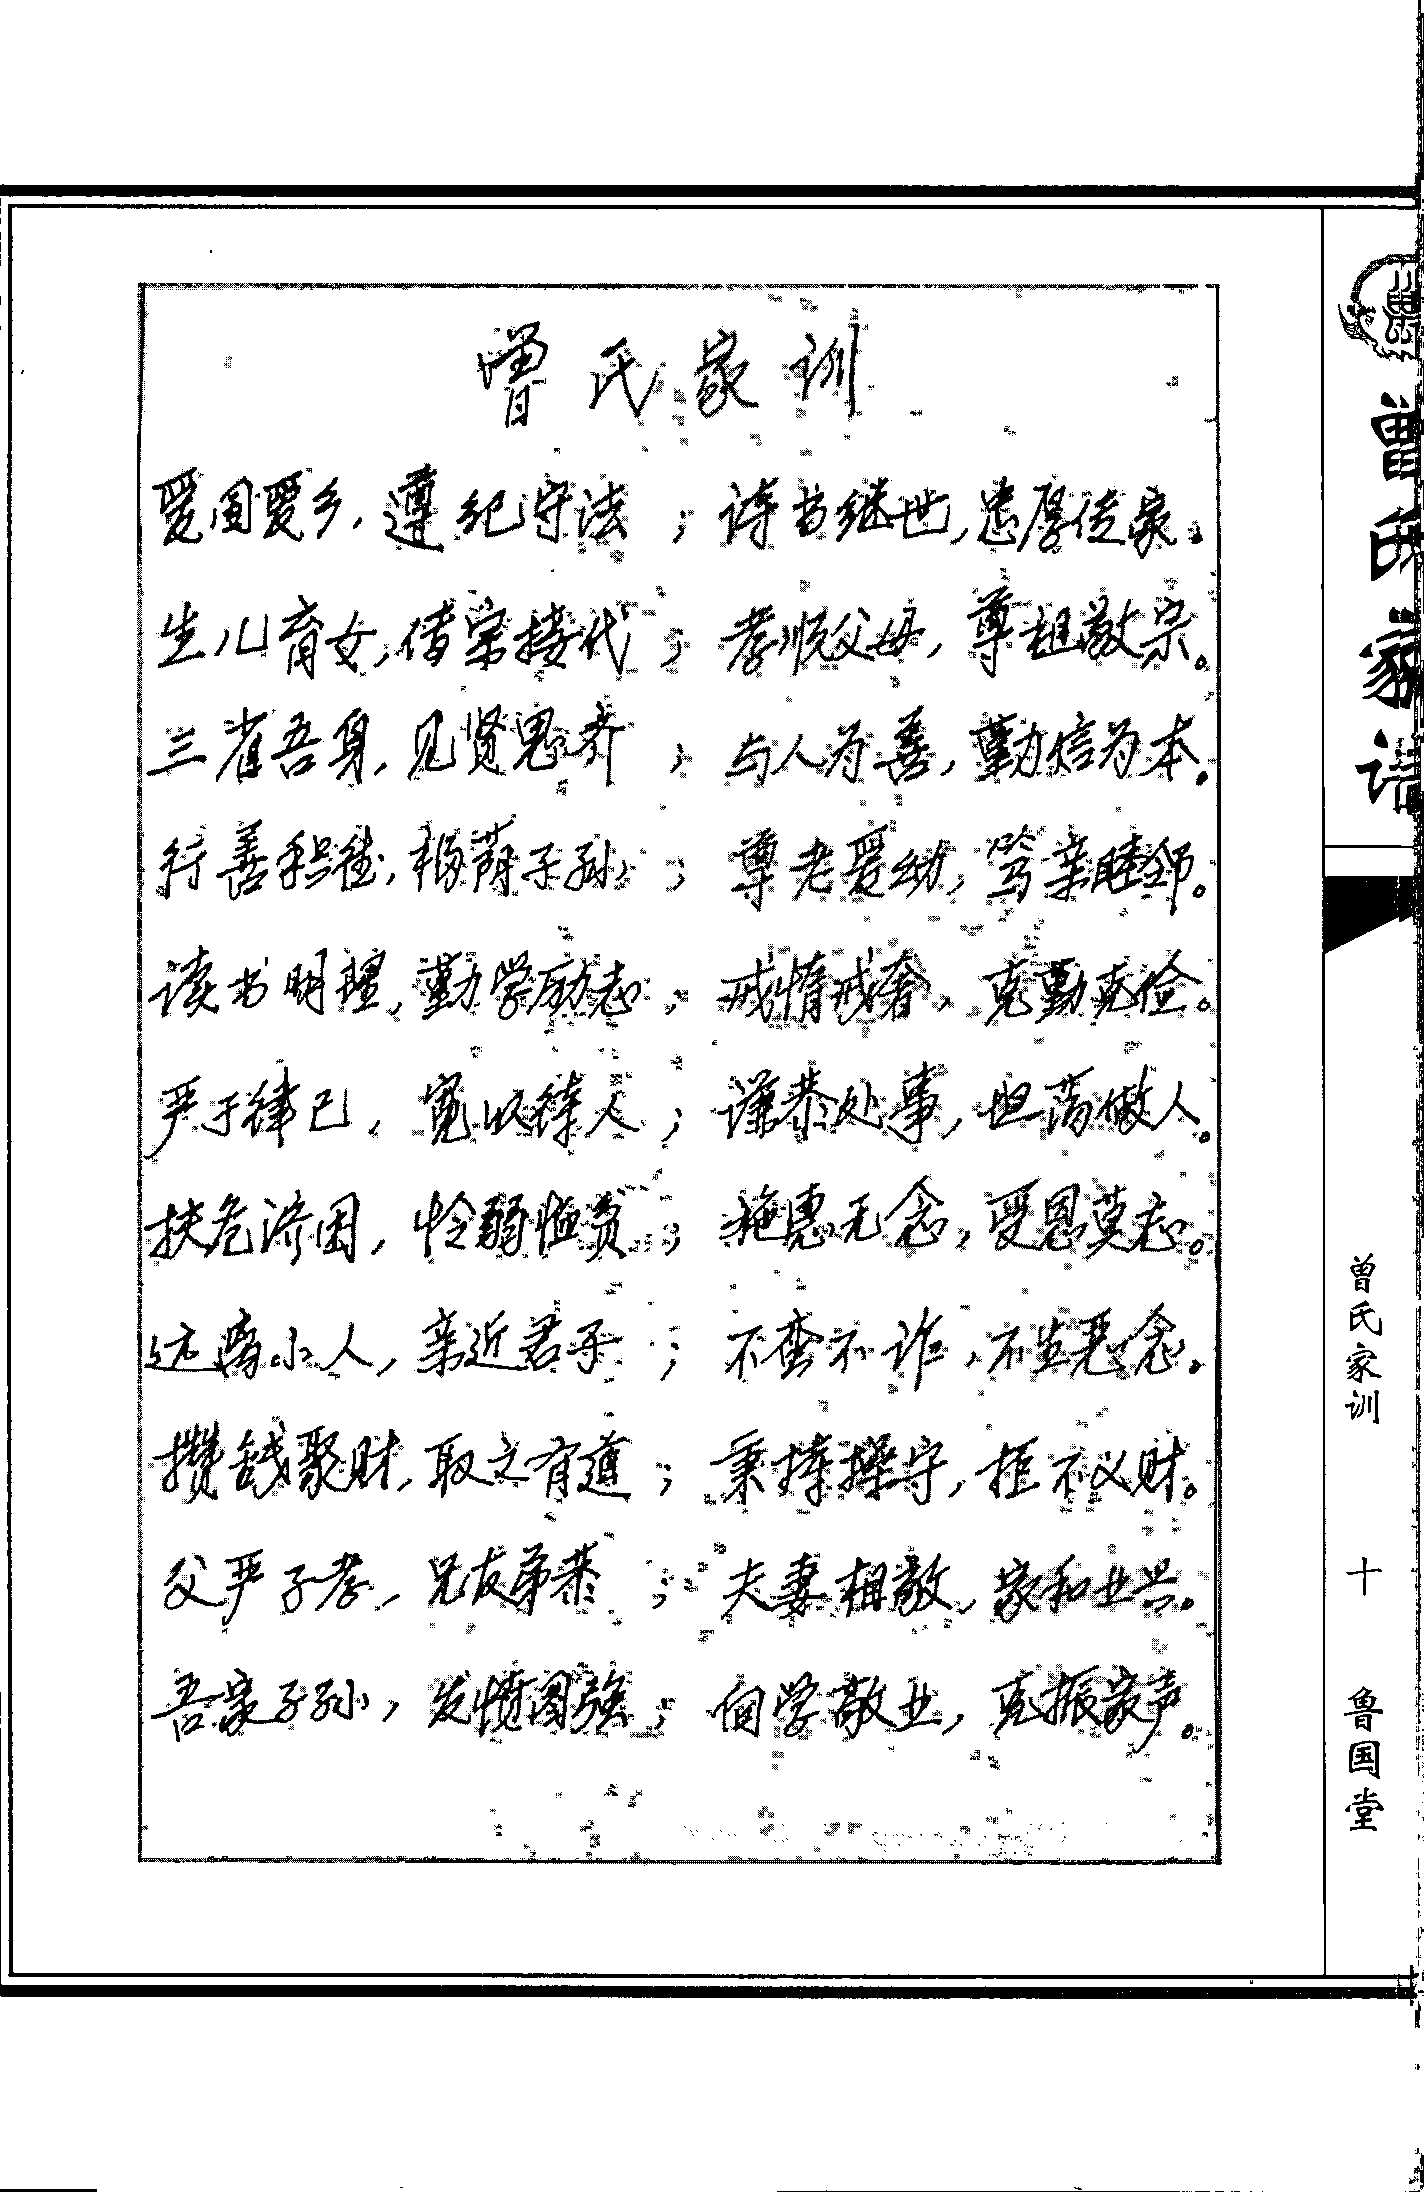 曾氏家训
爱国爱乡，遵纪守法；诗书继世，忠厚传家。
生儿育女，传宗接代；孝顺父母，尊祖敬宗。
三省吾身，见贤思齐；与人为善，勤俭为本。
行善积德，福荫子孙；尊老爱幼，笃亲睦邻。
读书明理，勤学励志；戒惰戒奢，克勤克俭。
严于律己，宽以待人；谦恭处事，坦荡做人。
扶危济困，怜弱恤贫；施惠无念，受恩莫忘。
远离小人，亲近君子；不蛮不诈，不生恶念。
攒钱聚财，取之有道；秉持操守，拒不义财。
父严子孝，兄友弟恭；夫妻相敬，家和业兴。
吾家子孙，发愤图强；向学敬业，克振家声。
曾氏家谱
曾氏家训
十
鲁国堂